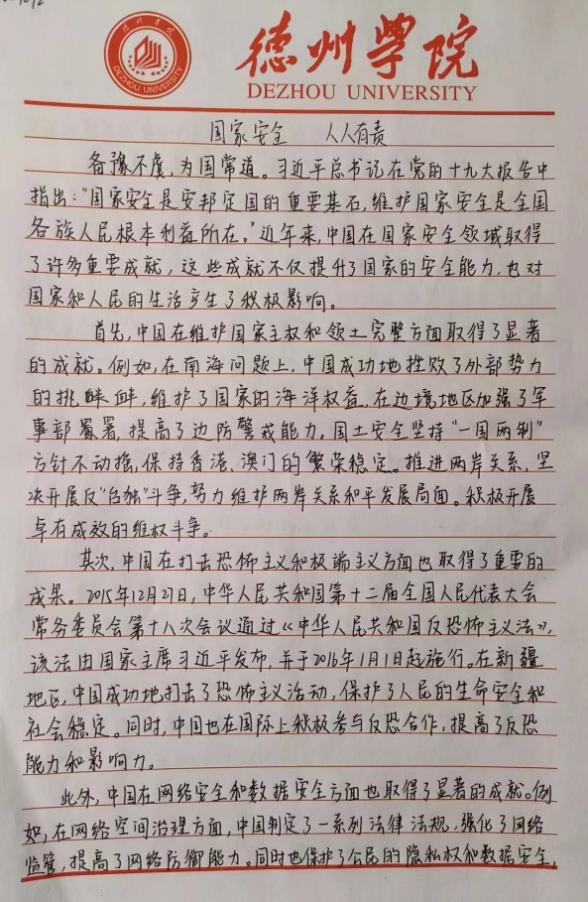 德州学院
DEZHOU UNIVERSITY
DEZHOU UNIVERSITY
国家安全 人人有责
备豫不虞,为国常道。习近平总书记在党的十九大报告中
指出:“国家安全是安邦定国的重要基石,维护国家安全是全国
各族人民根本利益所在。”近年来,中国在国家安全领域取得
了许多重要成就,这些成就不仅提升了国家的安全能力,也对
国家和人民的生活产生了积极影响。
首先,中国在维护国家主权和领土完整方面取得了显著
的成就。例如,在南海问题上,中国成功地挫败了外部势力
的挑衅,维护了国家的海洋权益,在边境地区加强了军
事部署,提高了边防警戒能力,国土安全坚持“一国两制”
方针不动摇,保持香港、澳门的繁荣稳定。推进两岸关系,坚
决开展反“台独”斗争,努力维护两岸关系和平发展局面。积极开展
卓有成效的维权斗争。
其次,中国在打击恐怖主义和极端主义方面也取得了重要的
成果。2015年12月27日,中华人民共和国第十二届全国人民代表大会
常务委员会第十八次会议通过《中华人民共和国反恐怖主义法》,
该法由国家主席习近平发布,并于2016年1月1日起施行。在新疆
地区,中国成功地打击了恐怖主义活动,保护了人民的生命安全和
社会稳定。同时,中国也在国际上积极参与反恐合作,提高了反恐
能力和影响力。
此外,中国在网络安全和数据安全方面也取得了显著的成就。例
如,在网络空间治理方面,中国制定了一系列法律法规,强化了网络
监管,提高了网络防御能力。同时也保护了公民的隐私权和数据安全,